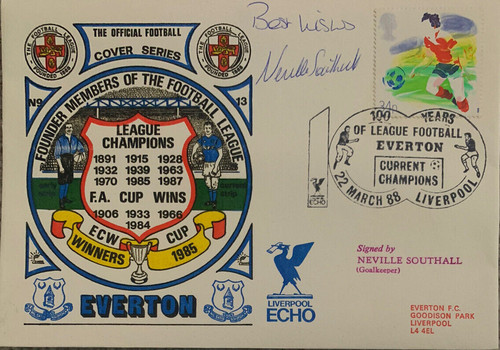 THE OFFICIAL FOOTBALL
COVER SERIES
FOUNDED 1888
FOUNDED 1888
FOUNDER MEMBERS OF THE FOOTBALL LEAGUE
Nº
13
LEAGUE
CHAMPIONS
1891 1915 1928
1932 1939 1963
1970 1985 1987
F.A. CUP WINS
1906 1933 1966
1984
ECW CUP
WINNERS 1985
early strip
current strip
EVERTON
Best wishes
Neville Southall
34p
100 YEARS
OF LEAGUE FOOTBALL
EVERTON
CURRENT
CHAMPIONS
22 MARCH 88 LIVERPOOL
ECHO
LIVERPOOL
ECHO
Signed by
NEVILLE SOUTHALL
(Goalkeeper)
EVERTON F.C.
GOODISON PARK
LIVERPOOL
L4 4EL